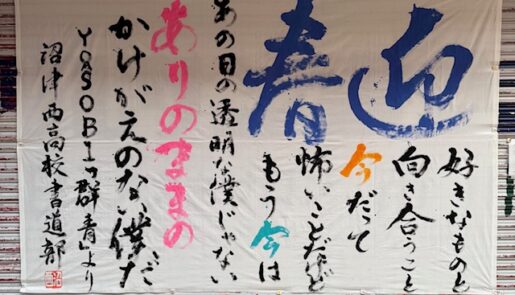 迎春
好きなものと
向き合うこと
今だって
怖いことだけど
もう今は
あの日の透明な僕じゃない
ありのままの
かけがえのない僕だ
YOASOBI「群青」より
沼津西高校書道部